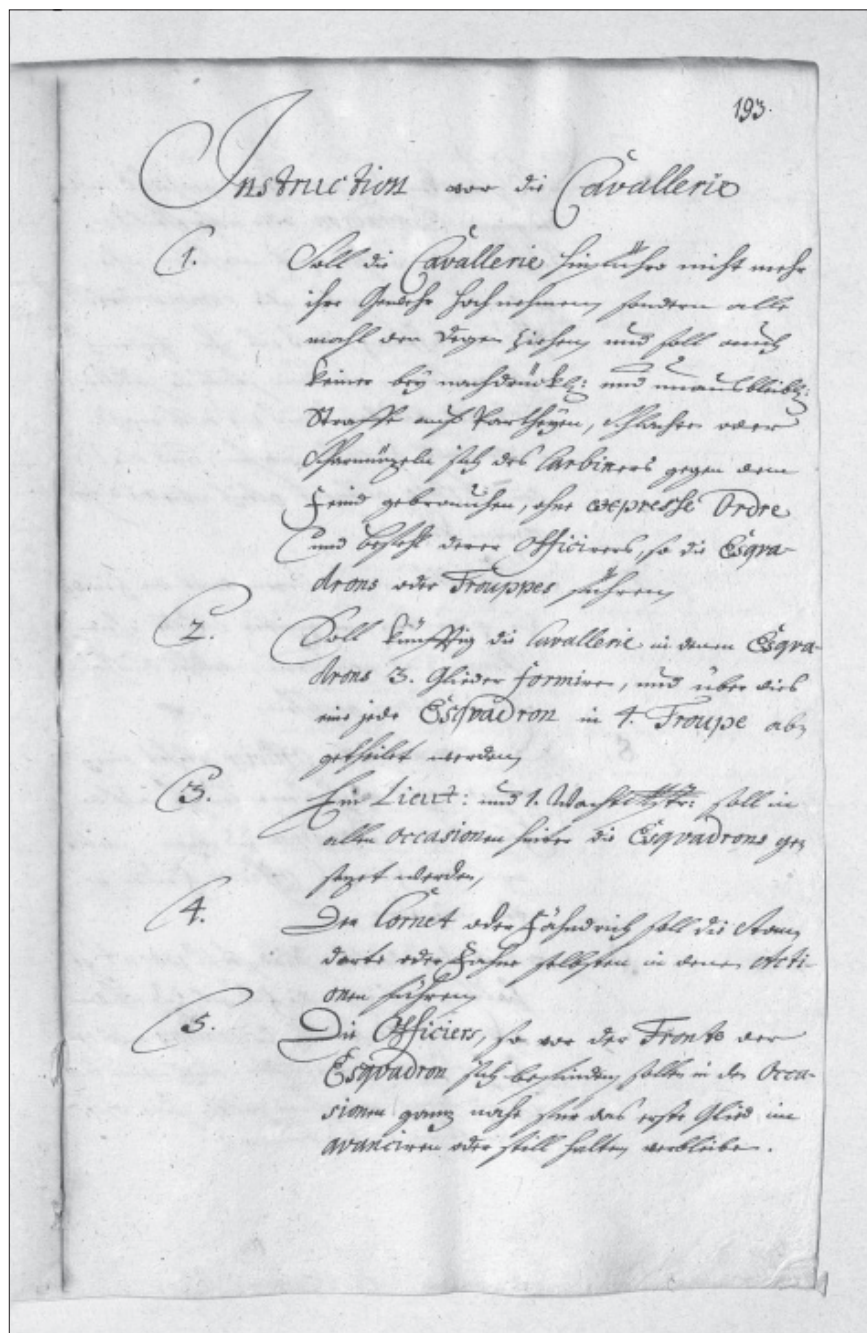 193.
Instruction vor die Cavallerie
1. Soll die Cavallerie hinführo nicht mehr
ihr Gewehr hoch nehmen sondern alle
mahl den Degen ziehen und soll auch
keiner bey nachdrückl: und unausbleibl:
Straffe auf Partheyen, Schlachten oder
Scharmüzeln sich des Carbiners gegen dem
Feind gebrauchen, ohne expresse Ordre
und Befehl derer Officirers, so die Esqva-
drons oder Trouppes führen
2. Soll künfftig die Cavallerie in denen Esqva-
drons 3. Glieder formiren, und über dies
eine jede Esqvadron in 4. Troupe ab
getheilet werden
3. Ein Lieut: und 1. Wachtmstr: soll in
allen occasionen hinter die Esqvadrons ge
sezet werden,
4. Der Cornet oder Fähndrich soll die Stan
darte oder Fahne selbsten in denen Acti-
onen führen
5. Die Officiers, so vor der Fronte der
Esqvadron sich befinden sollen in den Occa-
sionen ganz nahe für das erste Glied im
avanciren oder still halten verbleiben.